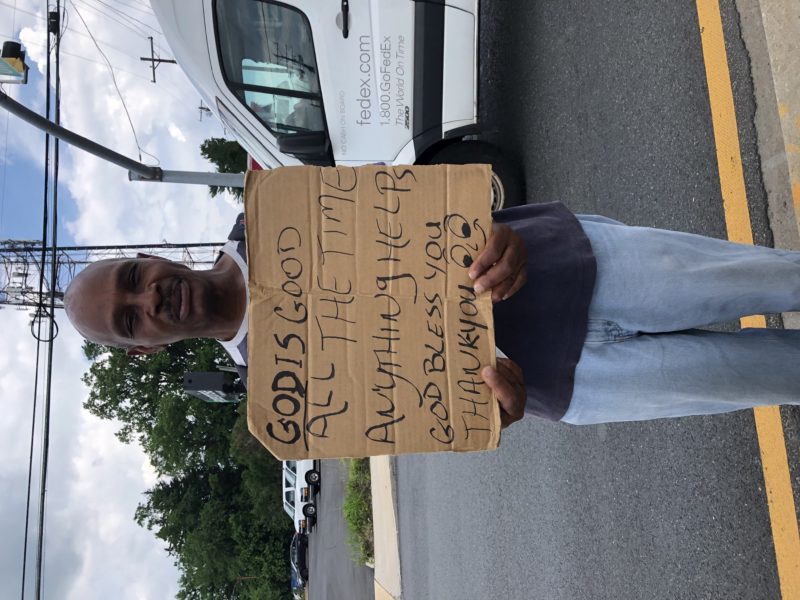 GOD IS GOOD
ALL THE TIME
ANYTHING HELPS
GOD BLESS YOU
THANKYOU
NO CASH ON BOARD
fedex.com
1.800.GoFedEx
The World On Time
2500